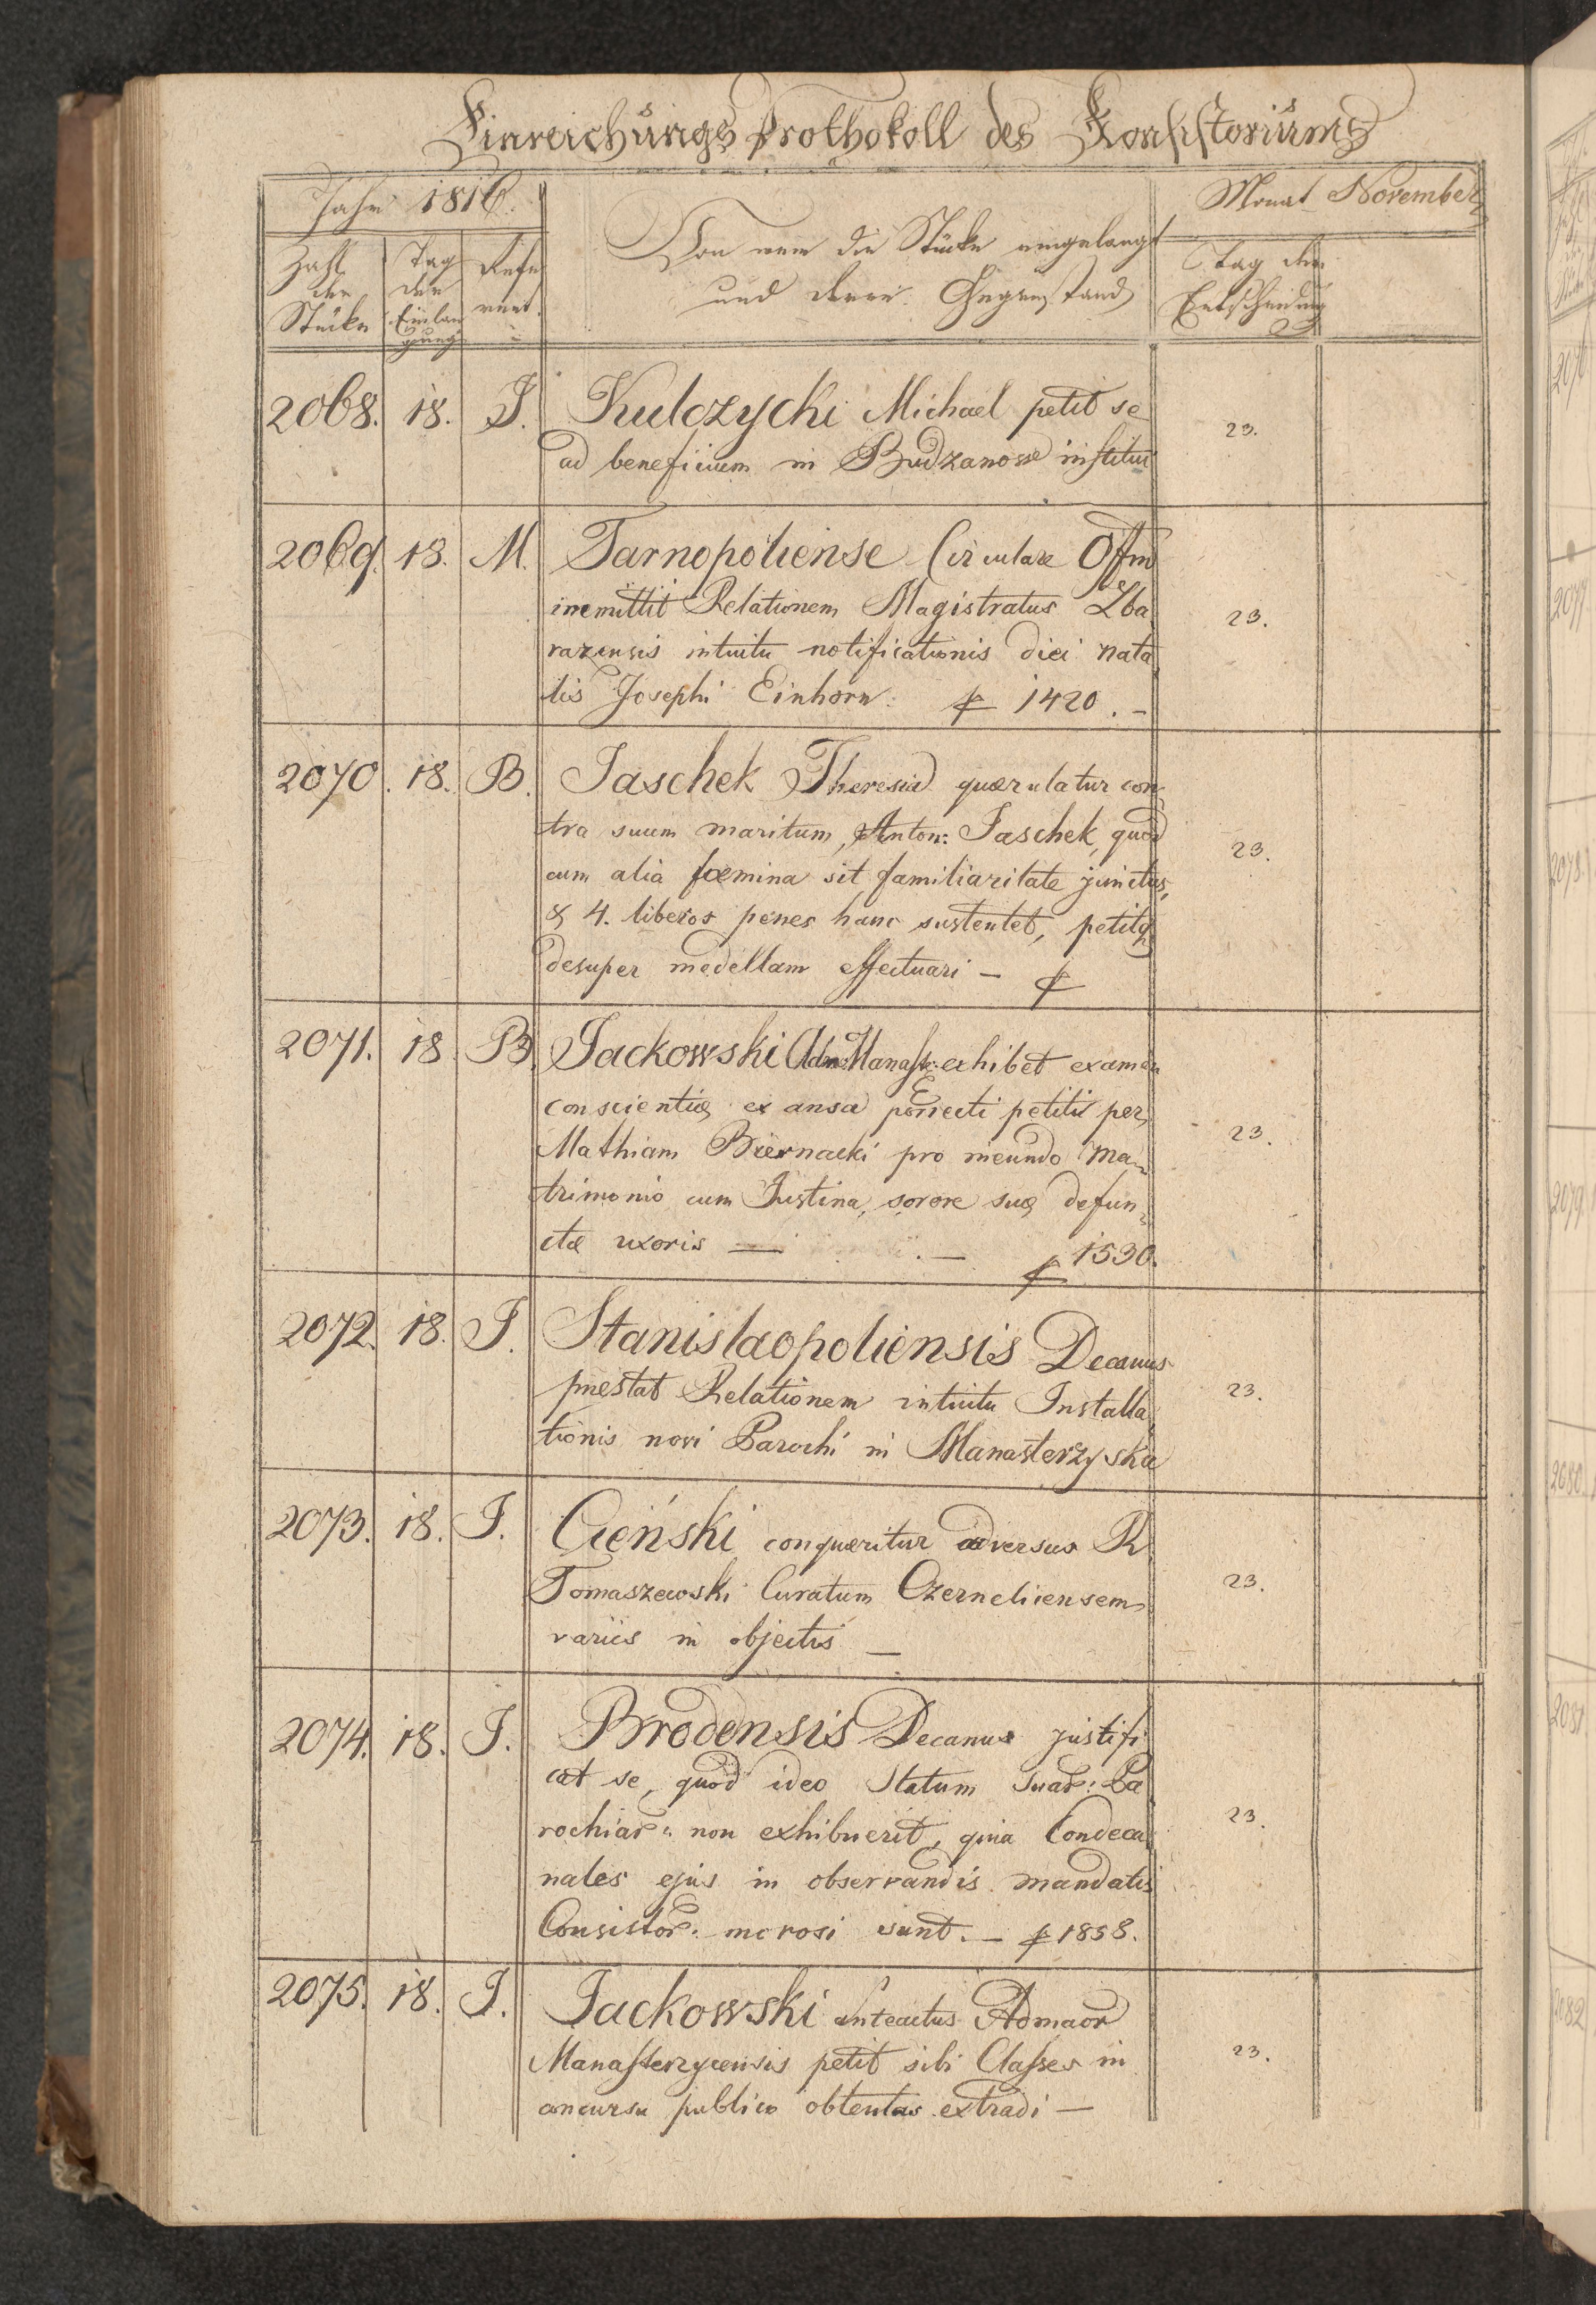 Einreichungs Prothokoll des Konsistoriums
Jahr 1816.
Monat November
Zahl der Stücke
Tag der Einlangung
Referent.
Von wem die Stücke eingelangt
und deren Gegenstand
Tag der
Entscheidung
2068. 18. J. Kulczycki Michael petit se 23.
ad beneficium in Budzanow institui
2069. 18. M. Tarnopoliense Circulare Offm
inemittit Relationem Magistratus Zba
razensis intuitu notificationis diei nata
lis Josephi Einhorn. 1420. - 23.
2070. 18. B. Jaschek Theresia quaerulatur con
tra suum maritum, Anton: Jaschek, quod
cum alia foemina sit familiaritate junctus, 23.
& 4. liberos penes hanc sustentet, petitq
desuper medellam effectuari —
2071. 18. B. Jackowski Adm: Manast: exhibet examen
conscientiae ex ansa porrecti petiti per
Mathiam Biernacki pro ineundo Ma- 23.
trimonio cum Justina, sorore suae defun-
ctae uxoris — . — 1530.
2072. 18. J. Stanislaopoliensis Decanus
praestat Relationem intuitu Installa 23.
tionis novi Parochi in Manasterzyska
2073. 18. J. Cieński conquaeritur adversus R.
Tomaszewski Curatum Czerneliiensem 23.
variis in objectis —
2074. 18. J. Brodensis Decanus justifi
cat se, quod ideo Statum suar: Pa
rochiar: non exhibuerit, quia Condeca 23.
nales ejus in observandis mandatis
Consistor: morosi sunt. — 1858.
2075. 18. J. Jackowski anteactus Admaor
Manasterzycensis petit sibi Classes in 23.
concursu publico obtentas extradi —